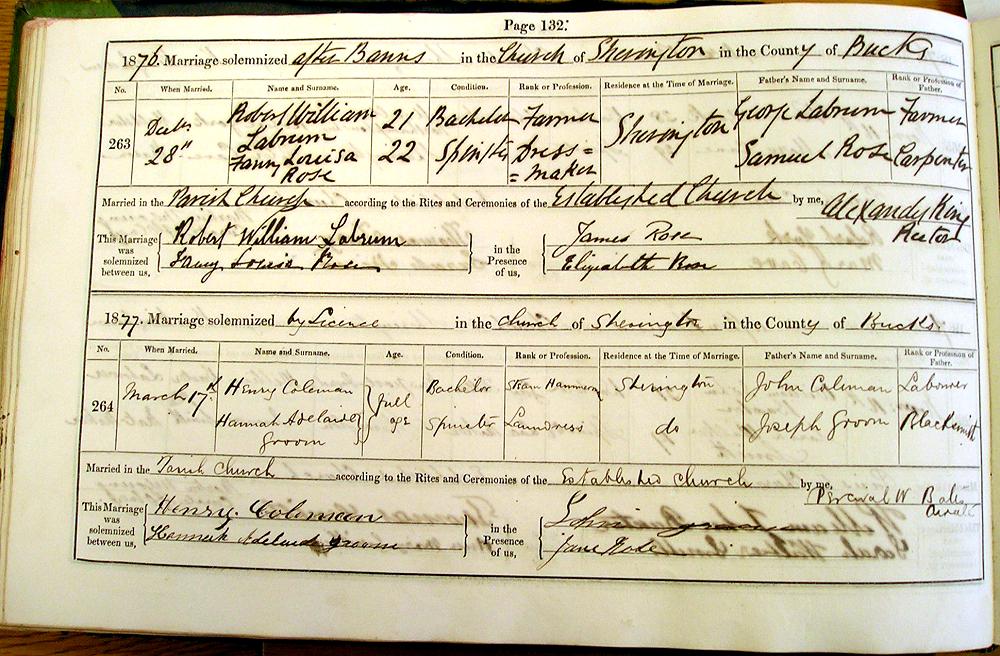 Page 132.
1876. Marriage solemnized after Banns in the Church of Sherington in the County of Bucks
No. When Married. Name and Surname. Age. Condition. Rank or Profession. Residence at the Time of Marriage. Father's Name and Surname. Rank or Profession of Father.
263 Decbr 28" Robert William Labrum 21 Bachelor Farmer Sherington George Labrum Farmer
Fanny Louisa Rose 22 Spinster Dress=maker Samuel Rose Carpenter
Married in the Parish Church according to the Rites and Ceremonies of the Established Church by me, Alexander King Rector
This Marriage was solemnized between us, Robert William Labrum
Fanny Louisa Rose
in the Presence of us, James Rose
Elizabeth Rose
1877. Marriage solemnized by Licence in the church of Sherington in the County of Bucks.
No. When Married. Name and Surname. Age. Condition. Rank or Profession. Residence at the Time of Marriage. Father's Name and Surname. Rank or Profession of Father.
264 March 17th Henry Coleman full age Bachelor Sherington John Coleman Labourer
Hannah Adelaide Groom Spinster Laundress do Joseph Groom Blacksmith
Married in the Parish Church according to the Rites and Ceremonies of the Established Church by me, Percival W
This Marriage was solemnized between us, Henry Coleman
Hannah Adelaide Groom
in the Presence of us, John
Jane Rose